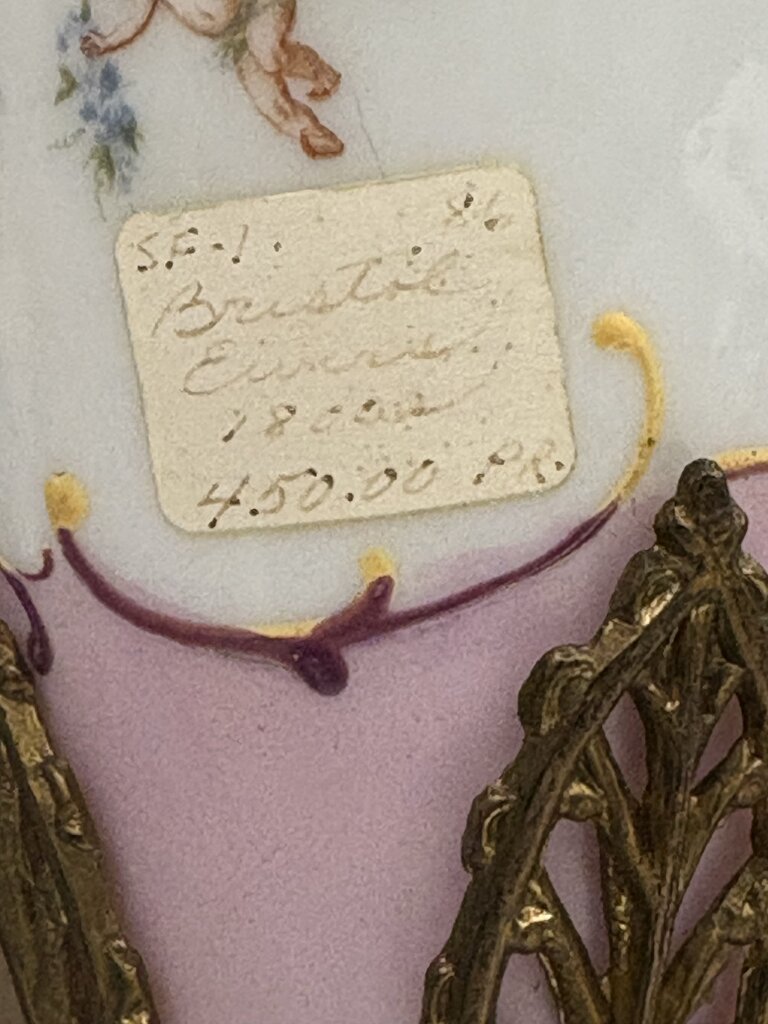 SF-1. 86
Bristol
1800s
450.00 PR.